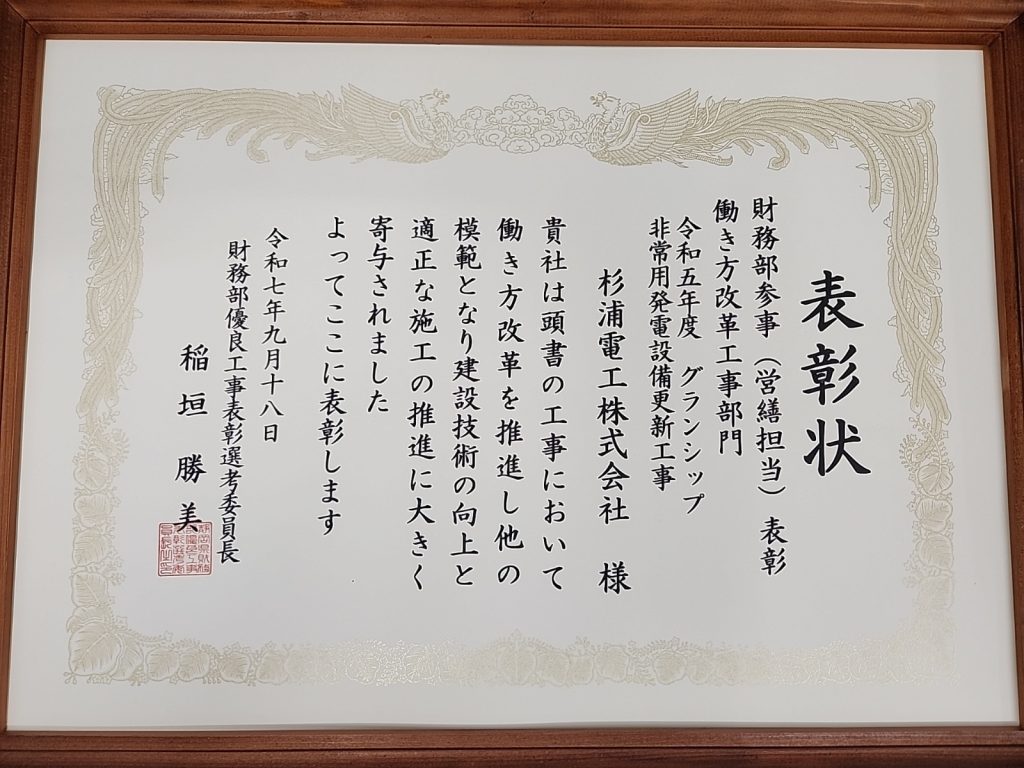 表彰状
財務部参事（営繕担当）表彰
働き方改革工事部門
令和五年度　グランシップ
非常用発電設備更新工事
杉浦電工株式会社　様
貴社は頭書の工事において
働き方改革を推進し他の
模範となり建設技術の向上と
適正な施工の推進に大きく
寄与されました
よってここに表彰します
令和七年九月十八日
財務部優良工事表彰選考委員長
稲垣勝美